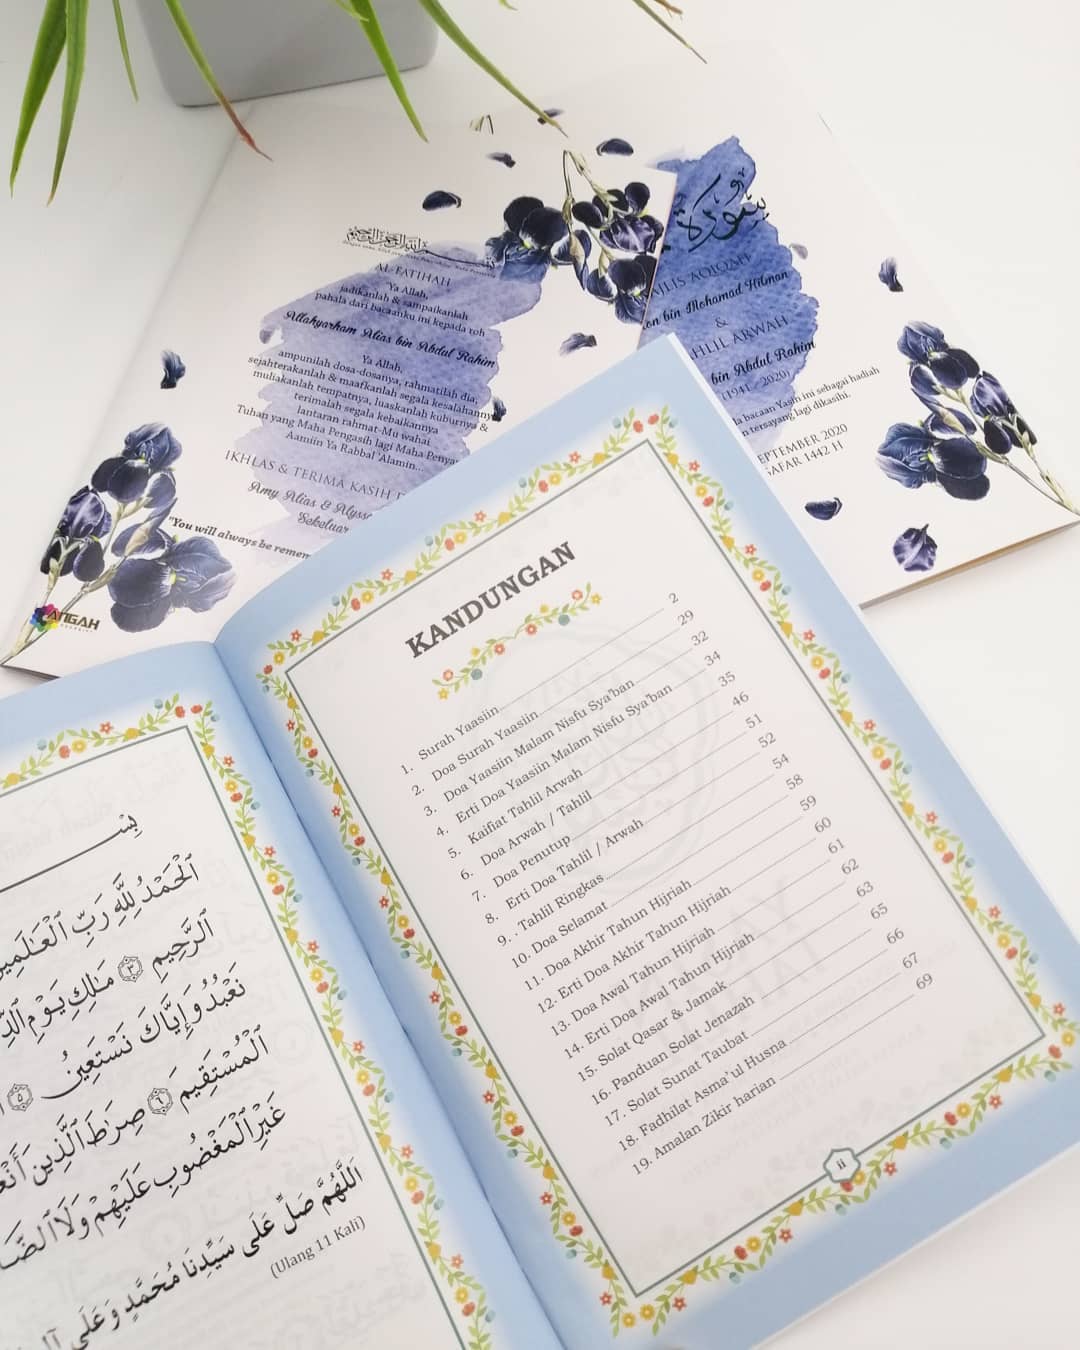 AL-FATIHAH
Ya Allah,
jadikanlah & sampaikanlah
pahala dari bacaanku ini kepada roh
Allahyarham Alias bin Abdul Rahim
Ya Allah,
ampunilah dosa-dosanya, rahmatilah dia,
sejahterakanlah & maafkanlah segala kesalahannya
muliakanlah tempatnya, luaskanlah kuburnya &
terimalah segala kebaikannya
lantaran rahmat-Mu wahai
Tuhan yang Maha Pengasih lagi Maha Penya
Aamiin Ya Rabbal 'Alamin...
IKHLAS & TERIMA KASIH D
Amy Alias & Alyss
Sekeluar
"You will always be remem
ANGAH
سورة
AJLIS AQIQAH
on bin Mohamad Hilman
&
HLIL ARWAH
bin Abdul Rahim
(1941 - 2020)
la bacaan Yasin ini sebagai hadiah
n tersayang lagi dikasihi.
EPTEMBER 2020
SAFAR 1442 H
بِسْ
ٱلْحَمْدُ لِلَّهِ رَبِّ ٱلْعَـٰلَمِي
ٱلرَّحِيمِ ٣ مَـٰلِكِ يَوْمِ ٱلدِّ
نَعْبُدُ وَإِيَّاكَ نَسْتَعِينُ ٥
ٱلْمُسْتَقِيمَ ٦ صِرَٰطَ ٱلَّذِينَ أَنْعَ
غَيْرِ ٱلْمَغْضُوبِ عَلَيْهِمْ وَلَا ٱلضَّا
اَللّٰهُمَّ صَلِّ عَلَى سَيِّدِنَا مُحَمَّدٍ وَعَلَى آلِ
(Ulang 11 Kali)
KANDUNGAN
1. Surah Yaasiin 2
2. Doa Surah Yaasiin 29
3. Doa Yaasiin Malam Nisfu Sya'ban 32
4. Erti Doa Yaasiin Malam Nisfu Sya'ban 34
5. Kaifiat Tahlil Arwah 35
6. Doa Arwah / Tahlil 46
7. Doa Penutup 51
8. Erti Doa Tahlil / Arwah 52
9. Tahlil Ringkas 54
10. Doa Selamat 58
11. Doa Akhir Tahun Hijriah 59
12. Erti Doa Akhir Tahun Hijriah 60
13. Doa Awal Tahun Hijriah 61
14. Erti Doa Awal Tahun Hijriah 62
15. Solat Qasar & Jamak 63
16. Panduan Solat Jenazah 65
17. Solat Sunat Taubat 66
18. Fadhilat Asma'ul Husna 67
19. Amalan Zikir harian 69
ii